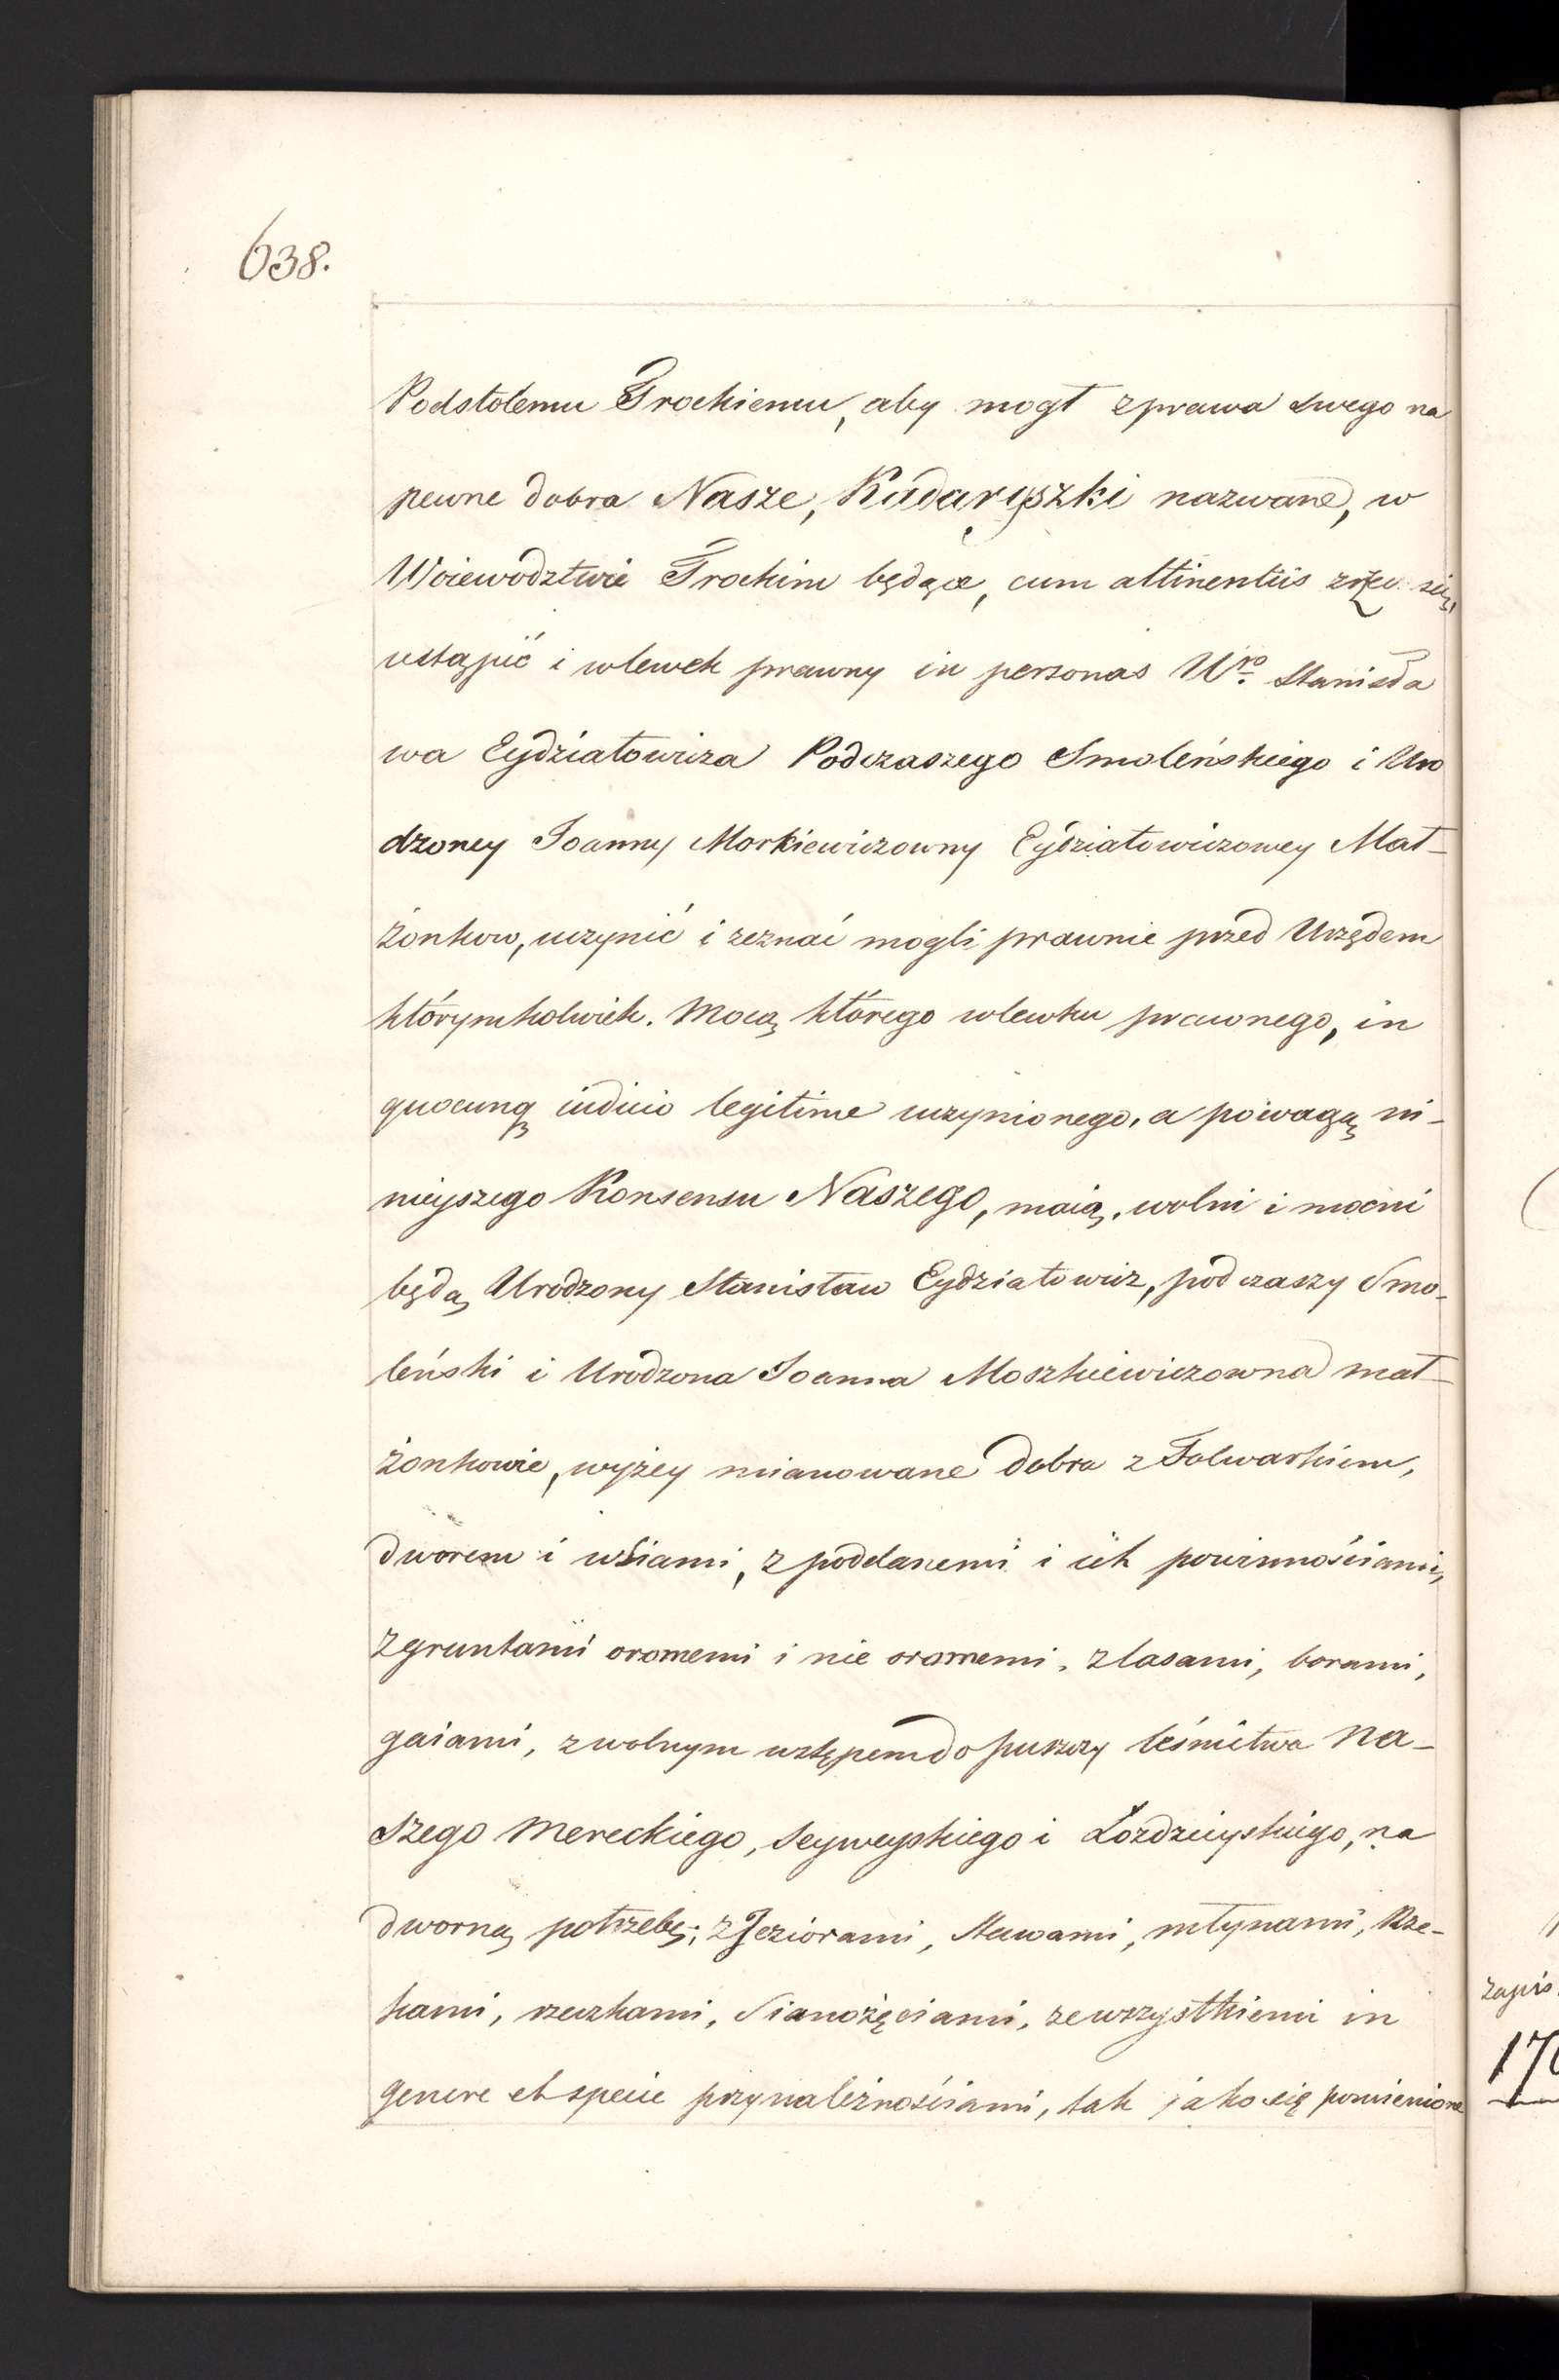 638.
Podstolemu Trockiemu, aby mogł z prawa swego na
pewne dobra Nasze, Kadaryszki nazwane, w
Woiewodztwie Trockim będące, cum attinentiis zrzec się,
ustąpić i wlewek prawny in personas Uro. Stanisła
wa Eydziatowicza Podczaszego Smoleńskiego i Uro
dzoney Joanny Morkiewiczowny Eydziatowiczowey Mał-
żonkow, uczynić i zeznać mogli prawnie przed Urzędem
którymkolwiek. Mocą którego wlewku prawnego, in
quocunq iudicio legitime uczynionego, a powagą ni-
nieyszego Konsensu Naszego, maią, wolni i mocni
będą Urodzony Stanisław Eydziatowicz, podczaszy Smo-
leński i Urodzona Joanna Moszkiewiczowna mał-
żonkowie, wyżey mianowane dobra z Folwarkiem,
dworem i wsiami, z poddanemi i ich powinnościami,
z gruntami oromemi i nie oromemi, z lasami, borami,
gaiami, z wolnym wstępem do puszczy leśnictwa Na-
szego Mereckiego, Seyweyskiego i Łozdzieyskiego, na
dworną potrzebę; z Jeziorami, stawami, młynami, Rze-
kami, rzeczkami, Sianożęciami, ze wszystkiemi in
genere et specie przynależnościami, tak jako się pomienione
zapis
170